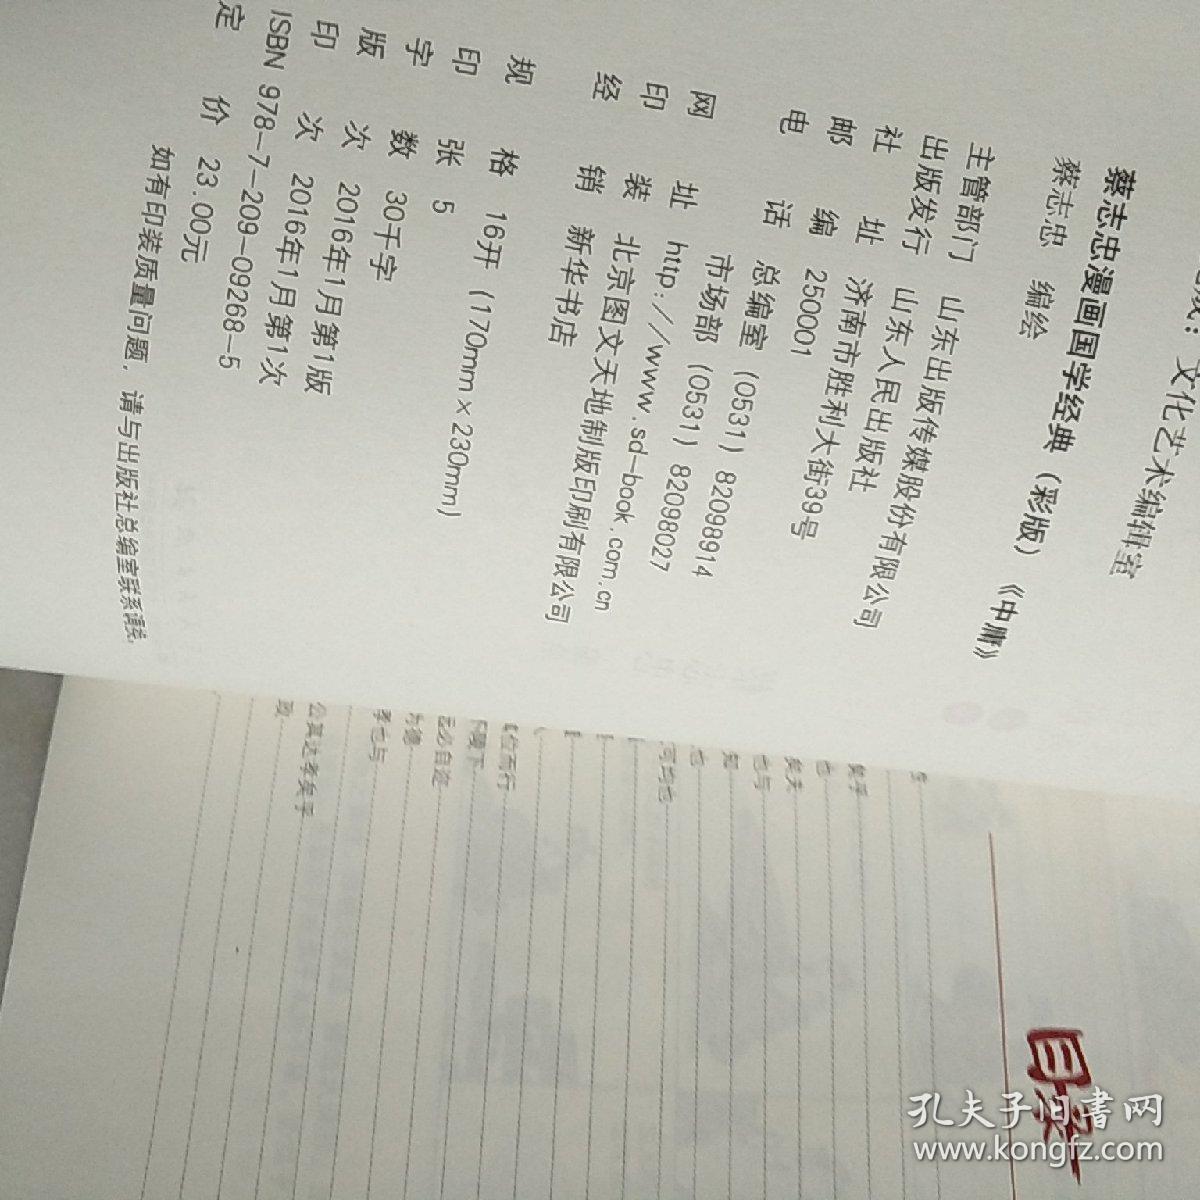 文化艺术编辑室
蔡志忠漫画国学经典（彩版）《中庸》
蔡志忠 编绘
主管部门 山东出版传媒股份有限公司
出版发行 山东人民出版社
社 址 济南市胜利大街39号
邮 编 250001
电 话 总编室（0531）82098914
市场部（0531）82098027
网 址 http://www.sd-book.com.cn
印 装 北京图文天地制版印刷有限公司
经 销 新华书店
规 格 16开（170mm×230mm）
印 张 5
字 数 30千字
版 次 2016年1月第1版
印 次 2016年1月第1次
ISBN 978-7-209-09268-5
定 价 23.00元
如有印装质量问题，请与出版社总编室联系调换
目录
矣乎
也
矣夫
也与
也
可均也
位而行
必自迩
为德
孝也与
公其达孝矣乎
政
孔夫子旧书网
www.kongfz.com